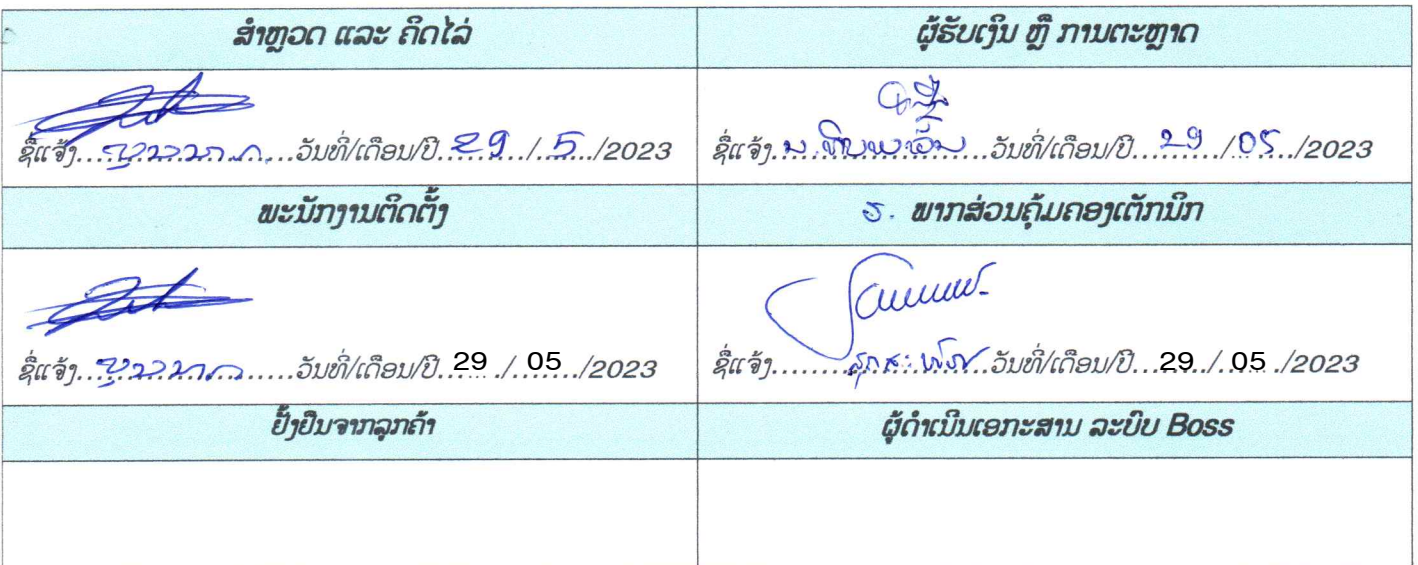 ສຳຫຼວດ ແລະ ຄິດໄລ່
ຜູ້ຮັບເງິນ ຫຼື ການຕະຫຼາດ
ຊື່ແຈ້ງ.... ....ວັນທີ່/ເດືອນ/ປີ. 29.../..5.../2023
ຊື່ແຈ້ງ. ນ. ....ວັນທີ່/ເດືອນ/ປີ....29..../.05..../2023
ພະນັກງານຕິດຕັ້ງ
ຮ. ພາກສ່ວນຄຸ້ມຄອງເຕັກນິກ
ຊື່ແຈ້ງ.... ......ວັນທີ່/ເດືອນ/ປີ. 29 ./. 05 .../2023
ຊື່ແຈ້ງ......... ....ວັນທີ່/ເດືອນ/ປີ....29.../. 05 ./2023
ຢັ້ງຢືນຈາກລູກຄ້າ
ຜູ້ດຳເນີນເອກະສານ ລະບົບ Boss